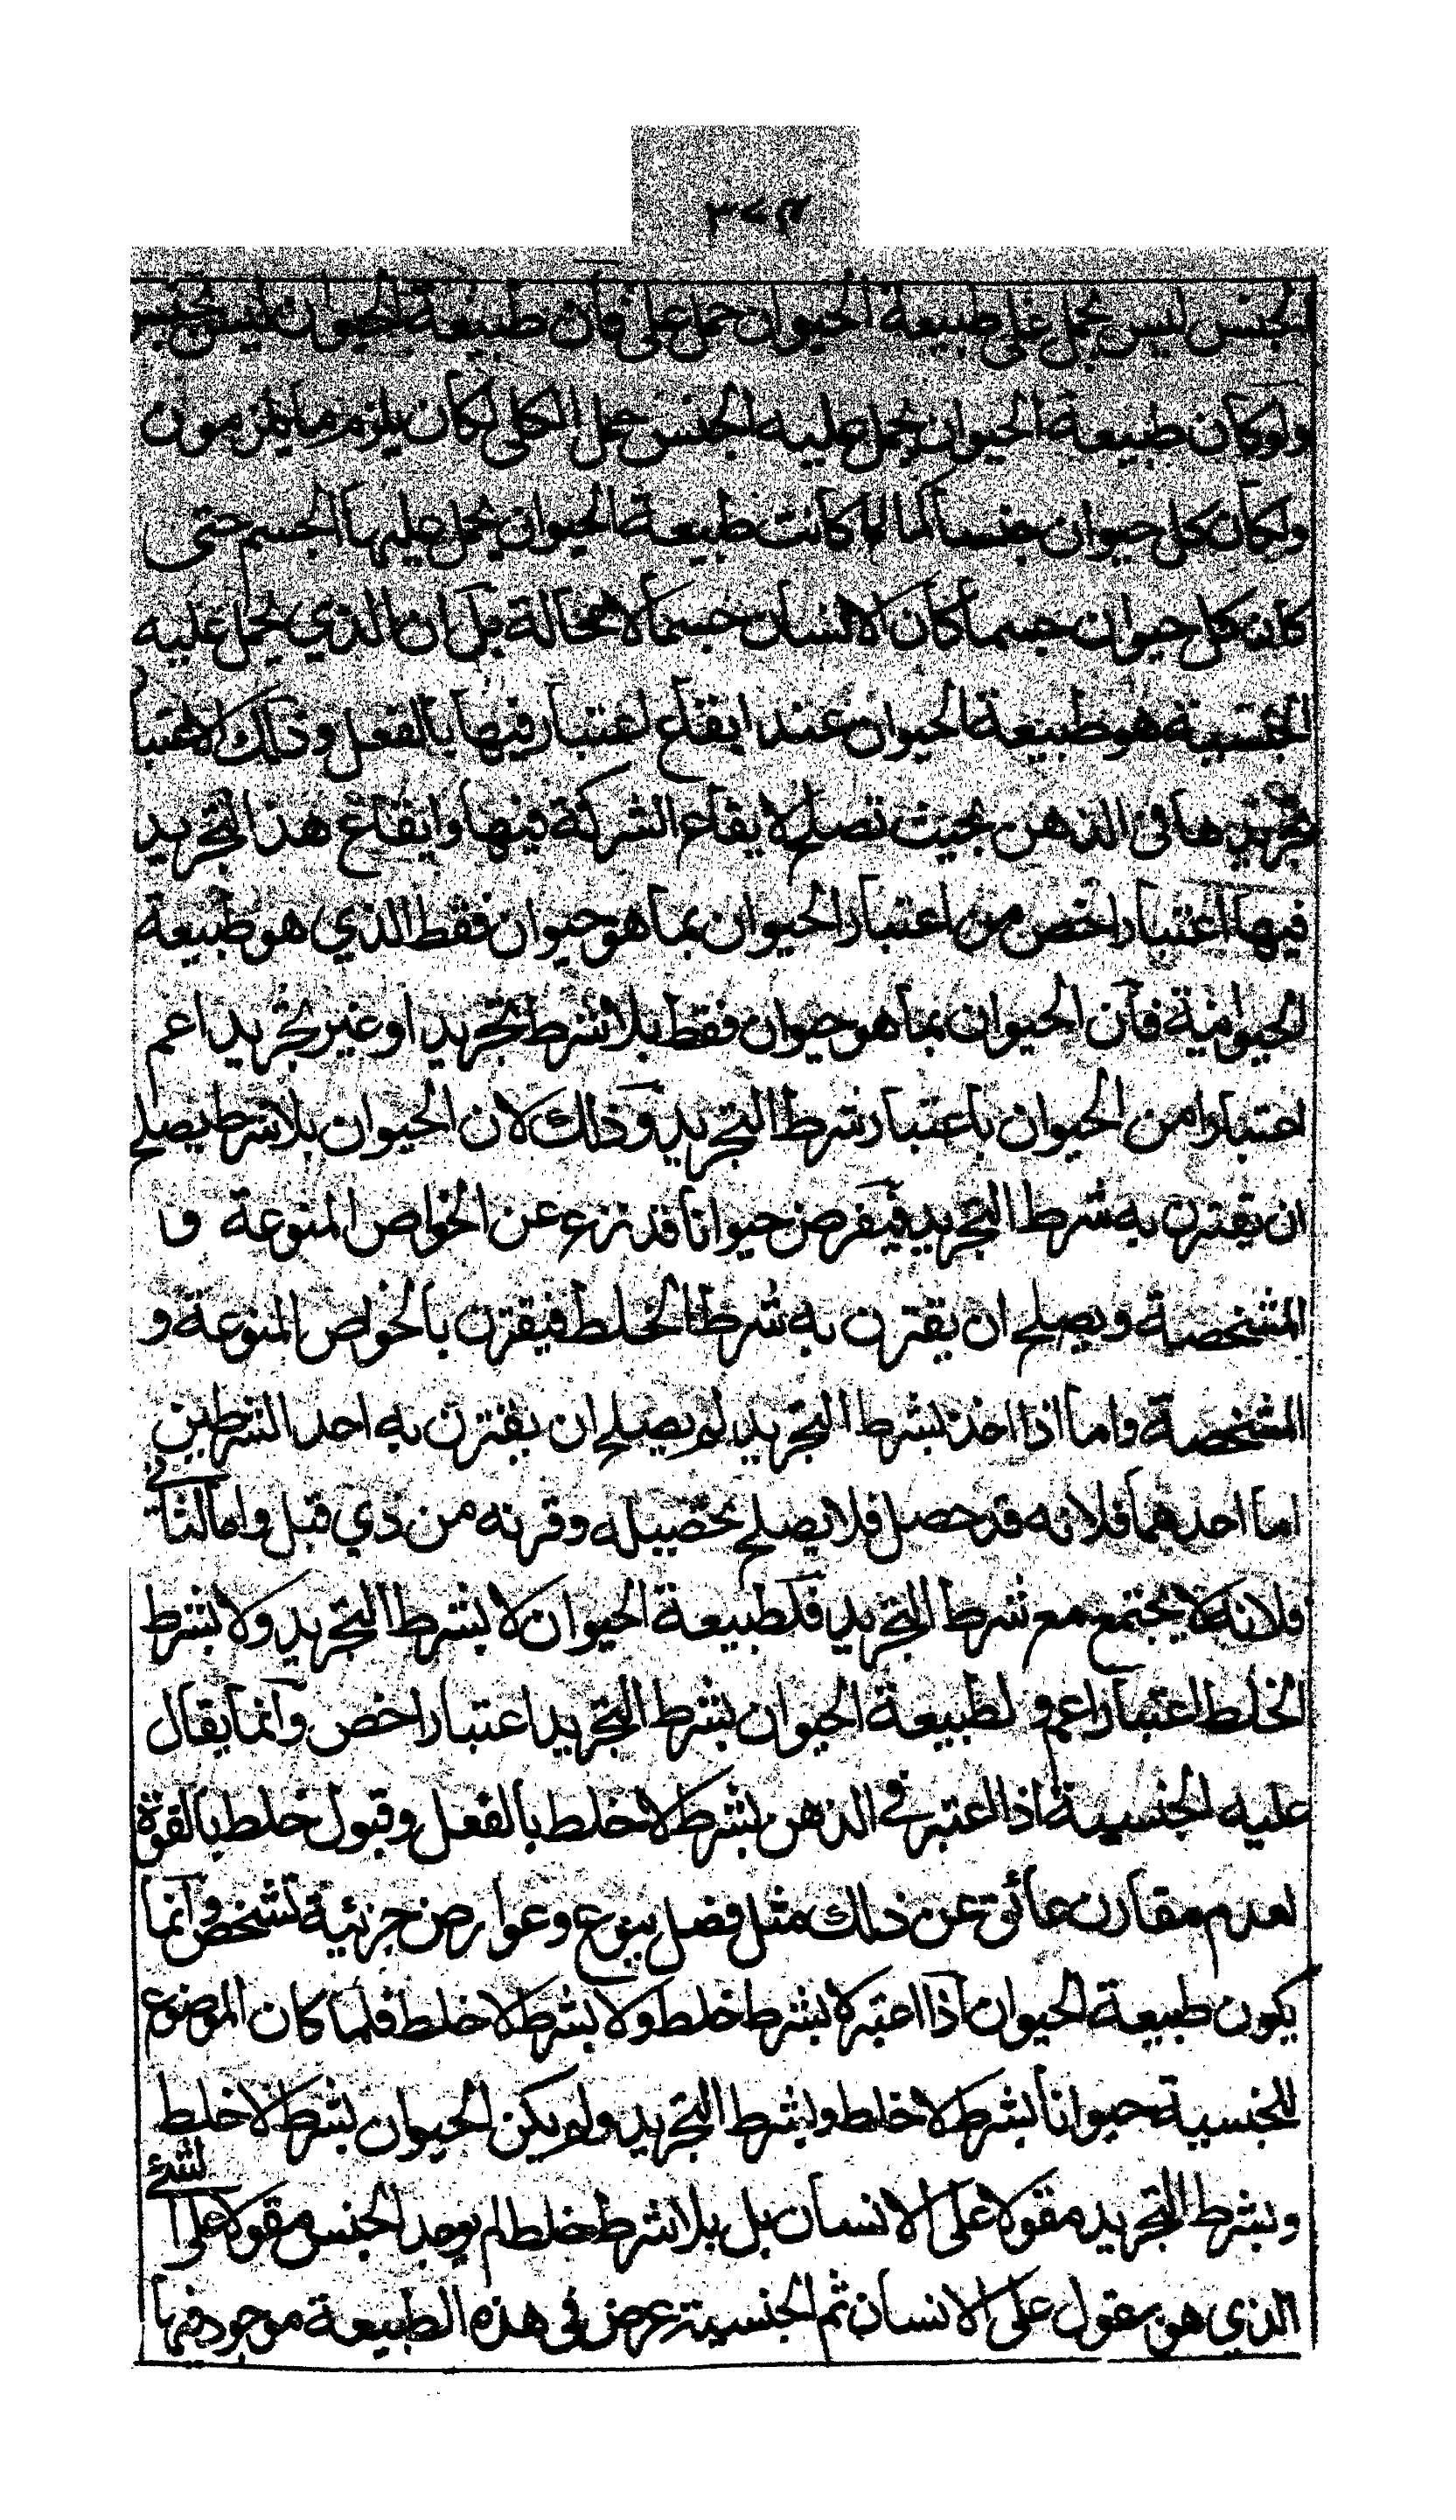 ٣٧٣
الجنس ليس يحمل على طبيعة الحيوان حمل على فان طبيعة الحيوان ليس بجنس
ولو كان طبيعة الحيوان يحمل عليه الجنس حمل الكلى لكان يلزم ما يلزمون
ولكان كل حيوان جنسا كما كانت طبيعة الحيوان يحمل عليها الجسم حتى
كان كل حيوان جسما كان الانسان جسما لا محالة بل ان الذي يحمل عليه
الجنسية هو طبيعة الحيوان عند ايقاع اعتبار فيها بالفعل وذلك الاعتبار
تجريدها فى الذهن بحيث تصلح لايقاع الشركة فيها وايقاع هذا التجريد
فيها اعتبار اخص من اعتبار الحيوان بما هو حيوان فقط الذي هو طبيعة
الحيوانية فان الحيوان بما هو حيوان فقط بلا شرط تجريد او غير تجريد اعم
اعتبارا من الحيوان باعتبار شرط التجريد وذلك لان الحيوان بلا شرط يصلح
ان يقترن به شرط التجريد فيفرض حيوانا قد نزع عن الخواص المنوعة و
المشخصة ويصلح ان يقترن به شرط الخلط فيقترن بالخواص المنوعة و
المشخصة واما اذا اخذ بشرط التجريد لم يصلح ان يقترن به احد الشرطين
اما احدهما فلانه قد حصل فلا يصلح تحصيله وقرنه من ذي قبل واما الثانى
فلانه لا يجتمع مع شرط التجريد فلطبيعة الحيوان لا بشرط التجريد ولا بشرط
الخلط اعتبار اعم ولطبيعة الحيوان بشرط التجريد اعتبار اخص وانما يقال
عليه الجنسية اذا اعتبر في الذهن بشرط لا خلط بالفعل وقبول خلط بالقوة
لعدم مقارن عائق عن ذلك مثل فصل ينوع وعوارض جزئية تشخص وانما
يكون طبيعة الحيوان اذا اعتبر لا بشرط خلط ولا بشرط لا خلط فلما كان الموضوع
للجنسية حيوانا بشرط لا خلط وبشرط التجريد ولم يكن الحيوان بشرط لا خلط
وبشرط التجريد مقولا على الانسان بل بلا شرط خلط لم يوجد الجنس مقولا على الشئ
الذي هو مقول على الانسان ثم الجنسية عرض فى هذه الطبيعة موجود فيها